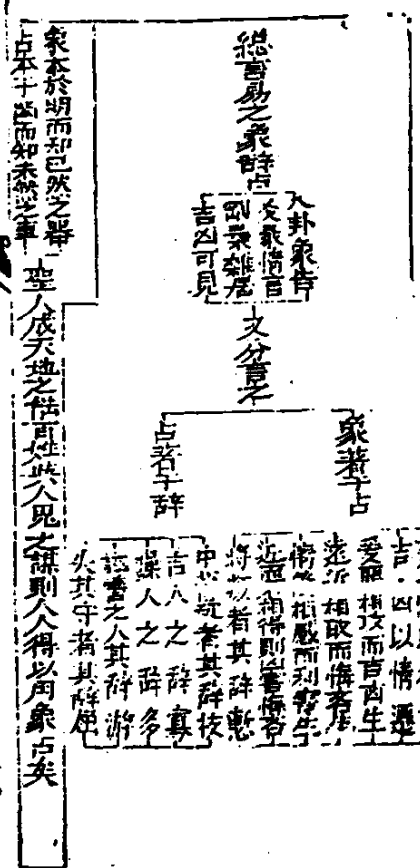 總言易之象辭占
八卦象告
爻彖情言
剛柔雜居
吉凶可見
又分言之
象著于占
吉凶以情遷
愛惡相攻而吉凶生
遠近相取而悔吝生
情偽相感而利害生
近 相得則凶害悔吝
占著于辭
將叛者其辭慙
中心疑者其辭枝
吉人之辭寡
躁人之辭多
誣善之人其辭游
失其守者其辭屈
象本於明而知已然之器
占本于 而知未然之事
聖人成天地之 百姓與人鬼之謀則人人得以用象占矣